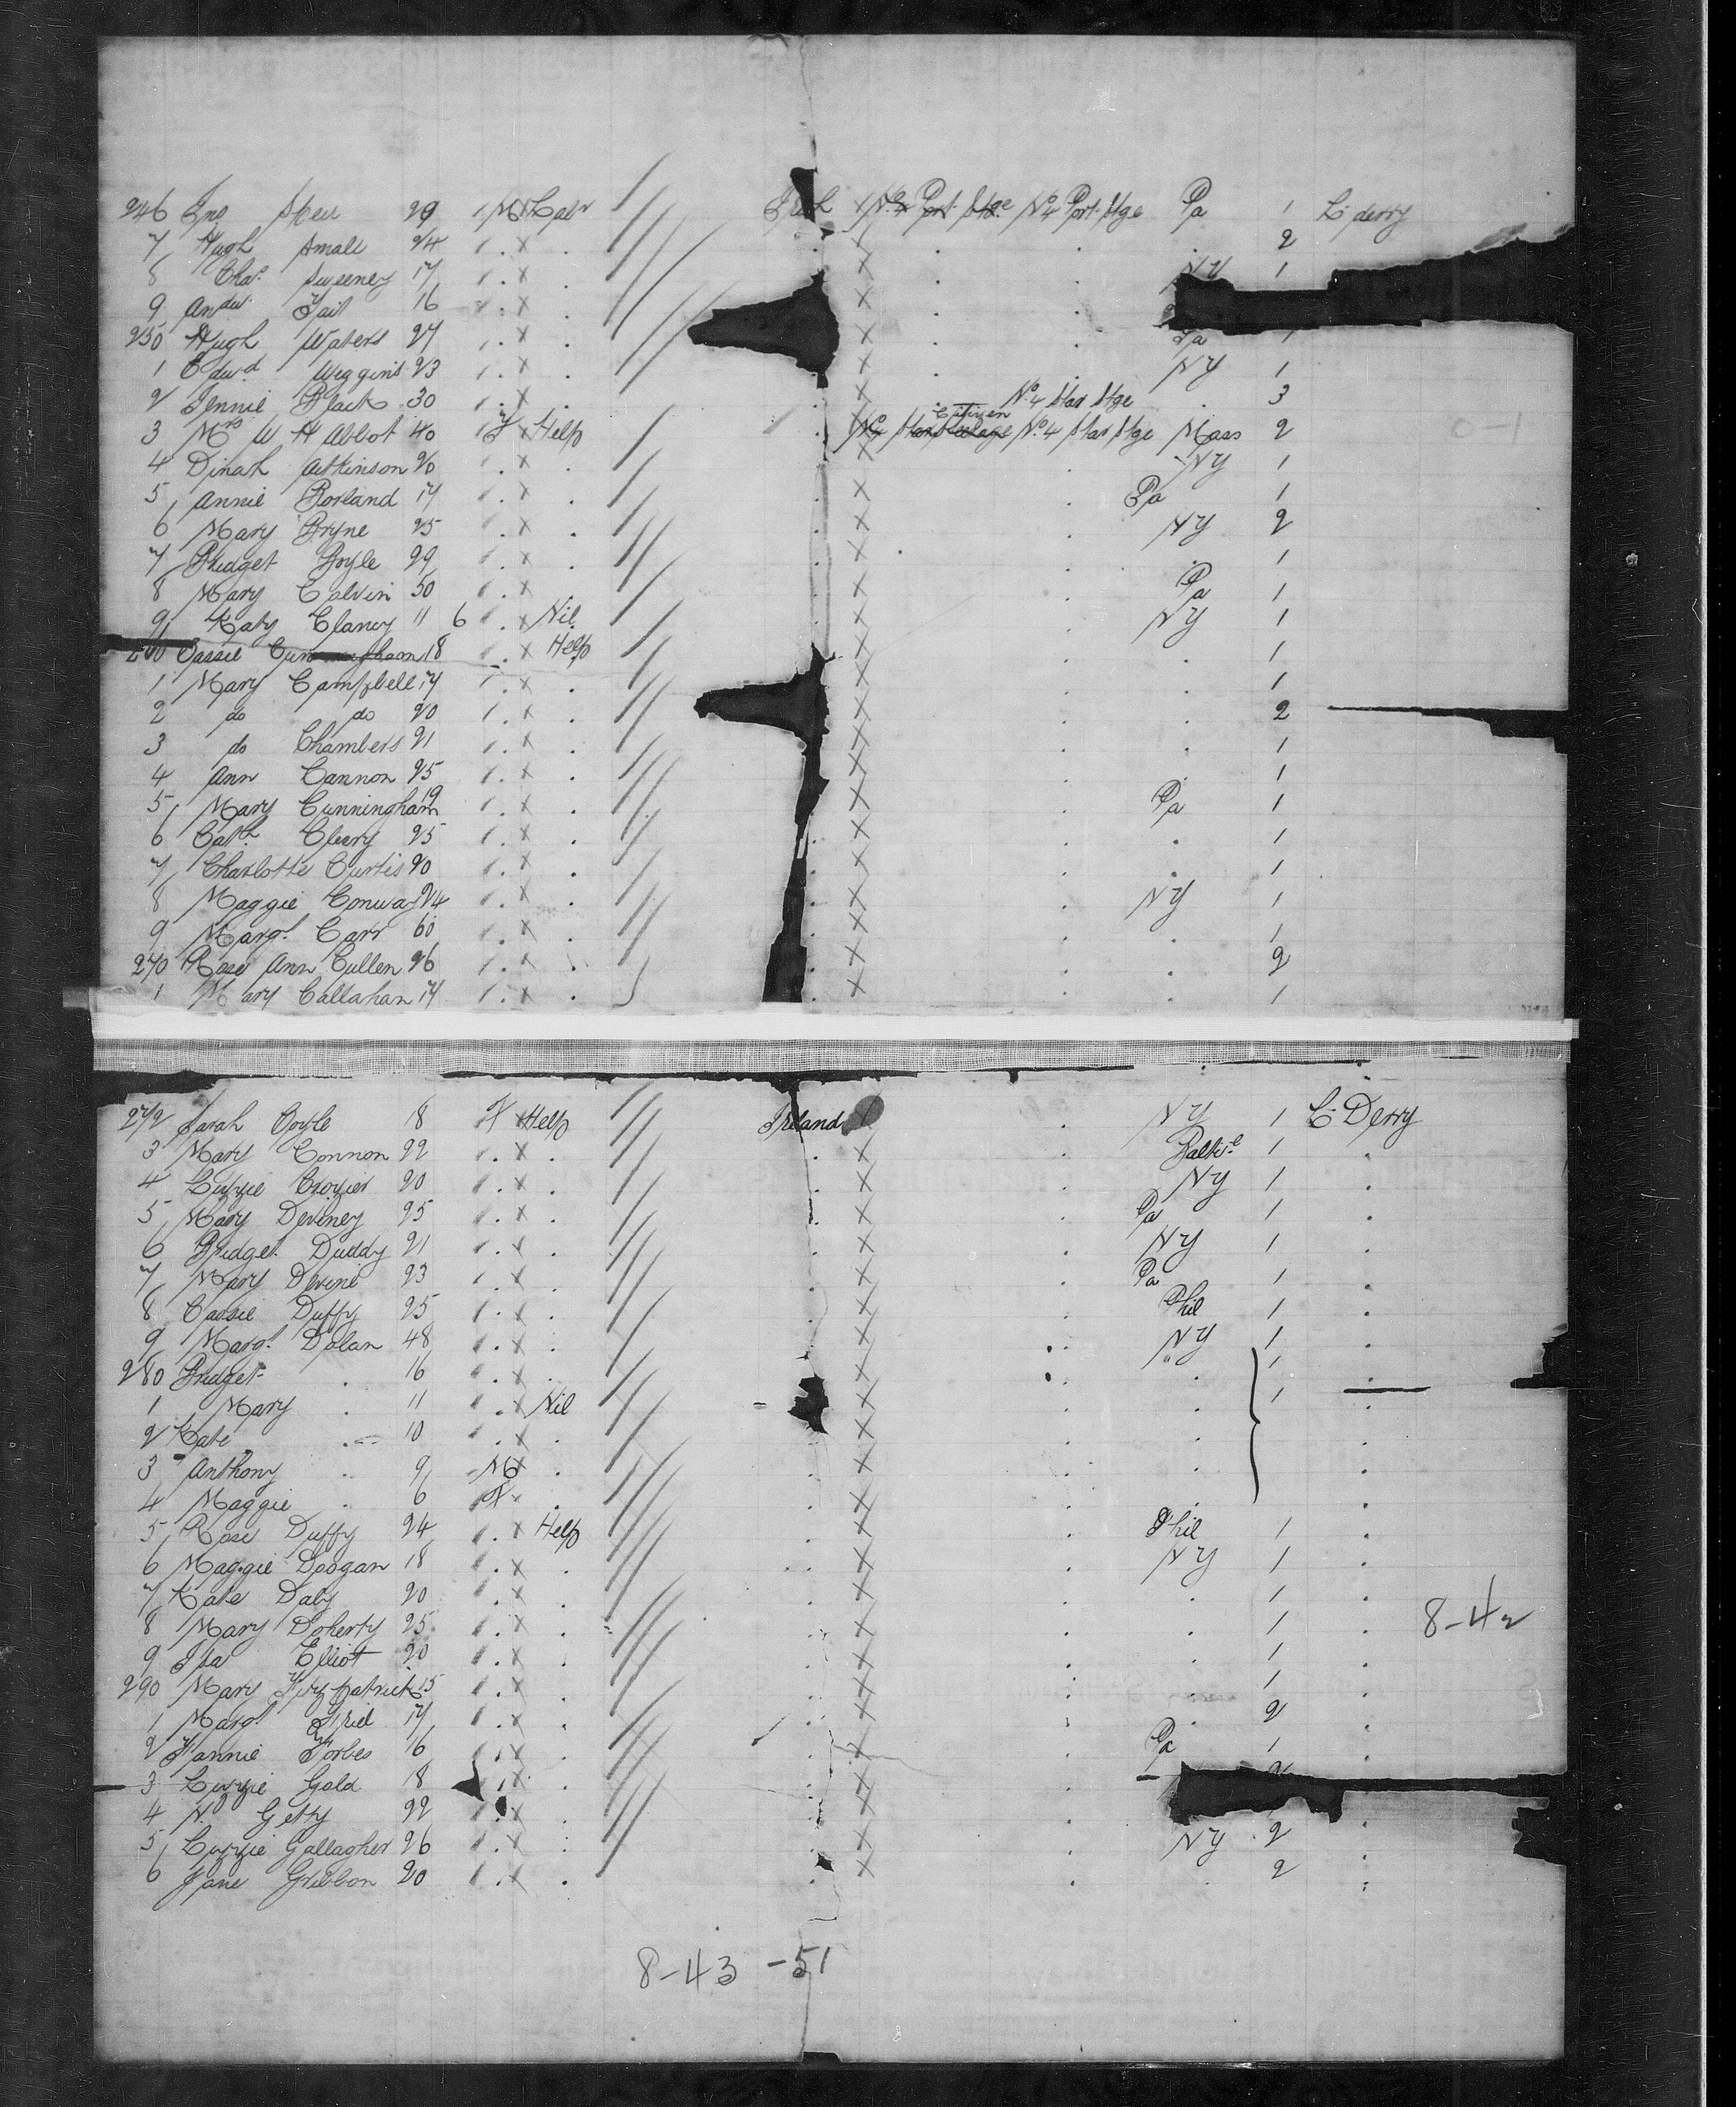 246 Jno Skeu 29 M Labr Irish No 4 Port Stge No 4 Port Stge Pa 1 L'derry
7 Hugh Small 24 2
8 Chas Sweeney 17 NY 1
9 Andw Tait 16
250 Hugh Waters 27 Pa 1
1 Edwd Weggins 23 NY 1
2 Jennie Black 30 No 4 Star Stge 3
Citizen
3 Mrs W H Abbot 40 F Help No 4 Star Stge Mass 2
4 Dinah Aitkinson 20 NY 1
5 Annie Borland 17 Pa 1
6 Mary Bryne 25 NY 2
7 Bridget Boyle 22 1
8 Mary Calvin 50 Pa 1
9 Katy Clancy 11 6 Nil NY 1
260 Cassie Cunningham 18 Help 1
1 Mary Campbell 17 1
2 do do 20 2
3 do Chambers 21 1
4 Ann Cannon 25 1
5 Mary Cunningham 19 Pa 1
6 Cath Cleery 25 1
7 Charlotte Curtis 20 1
8 Maggie Conway 24 NY 1
9 Margt Carr 60 1
270 Rose Ann Cullen 26 2
1 Mary Callahan 17 1
272 Sarah Coyle 18 F Help Ireland NY 1 L'Derry
3 Mary Connon 22 Balte 1
4 Lizzie Crozier 20 NY 1
5 Mary Deveney 25 Pa 1
6 Bridget Duddy 21 NY 1
7 Mary Devine 23 Pa 1
8 Cassie Duffy 25 Phil 1
9 Margt Dolan 48 NY 1
280 Bridget 16 1
1 Mary 11 Nil 1
2 Kate 10
3 Anthony 9 M
4 Maggie 6 F
5 Rose Duffy 24 Help Phil 1
6 Maggie Doogan 18 NY 1
7 Kate Daly 20 1
8 Mary Doherty 25 1
8-42
9 Isa Elliot 20 1
290 Mary Fitzpatrick 15 1
1 Margt Friel 17 2
2 Fannie Forbes 16 Pa 1
3 Lizzie Gald 18
4 Getty 22 2
5 Lizzie Gallagher 26 NY 2
6 Jane Gribbon 20 2
8-43 -51